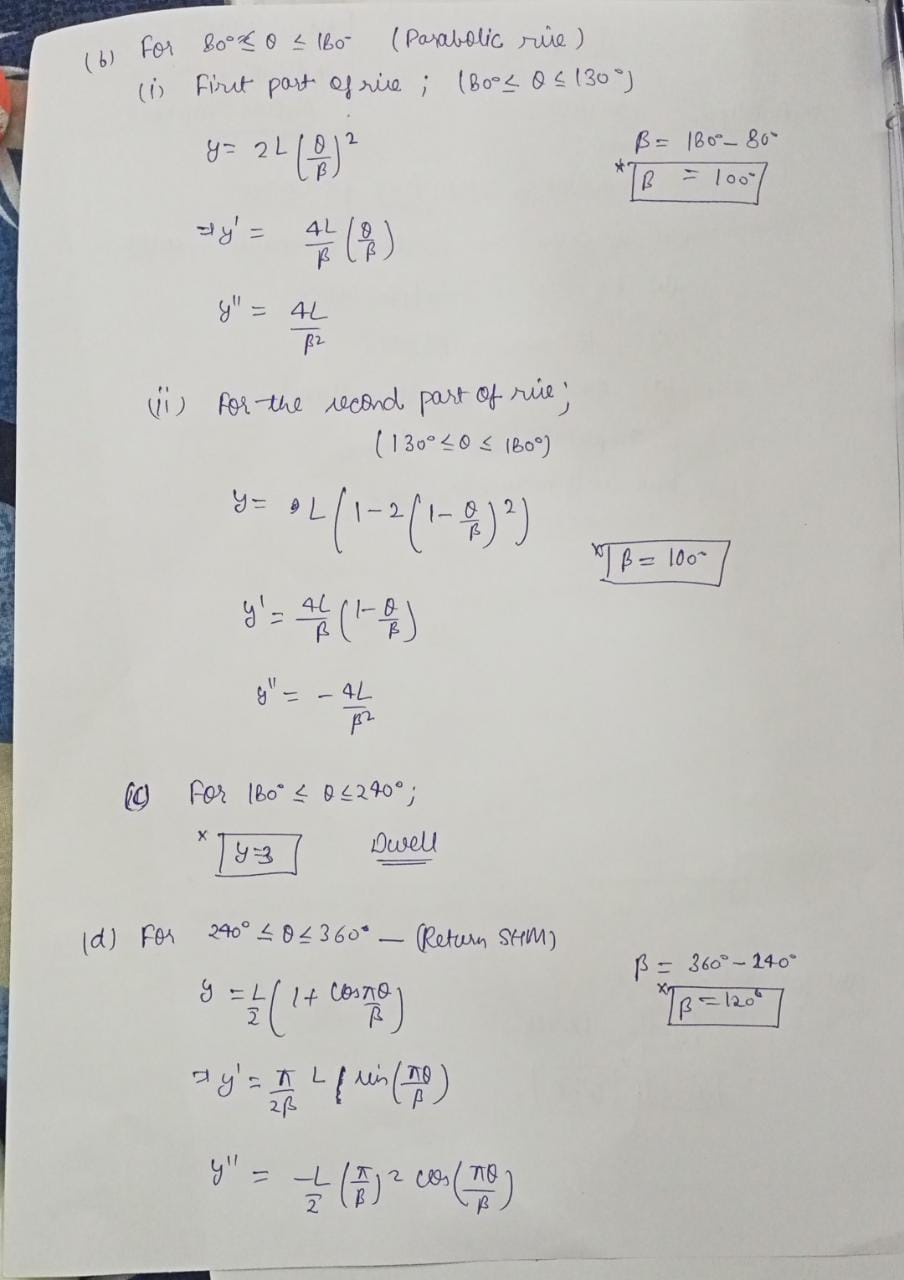 (b) For 80° ≤ θ ≤ 180° (Parabolic rise)
(i) First part of rise ; (80° ≤ θ ≤ 130°)
y = 2L (θ/β)²
β = 180° - 80°
* β = 100°
⇒ y' = 4L/β (θ/β)
y'' = 4L/β²
(ii) For the second part of rise;
(130° ≤ θ ≤ 180°)
y = L (1 - 2(1 - θ/β)²)
* β = 100°
y' = 4L/β (1 - θ/β)
y'' = - 4L/β²
(c) For 180° ≤ θ ≤ 240°;
* y=3 Dwell
(d) For 240° ≤ θ ≤ 360° — (Return SHM)
β = 360° - 240°
* β = 120°
y = L/2 (1 + cos πθ/β)
⇒ y' = π/2β L sin(πθ/β)
y'' = -L/2 (π/β)² cos(πθ/β)